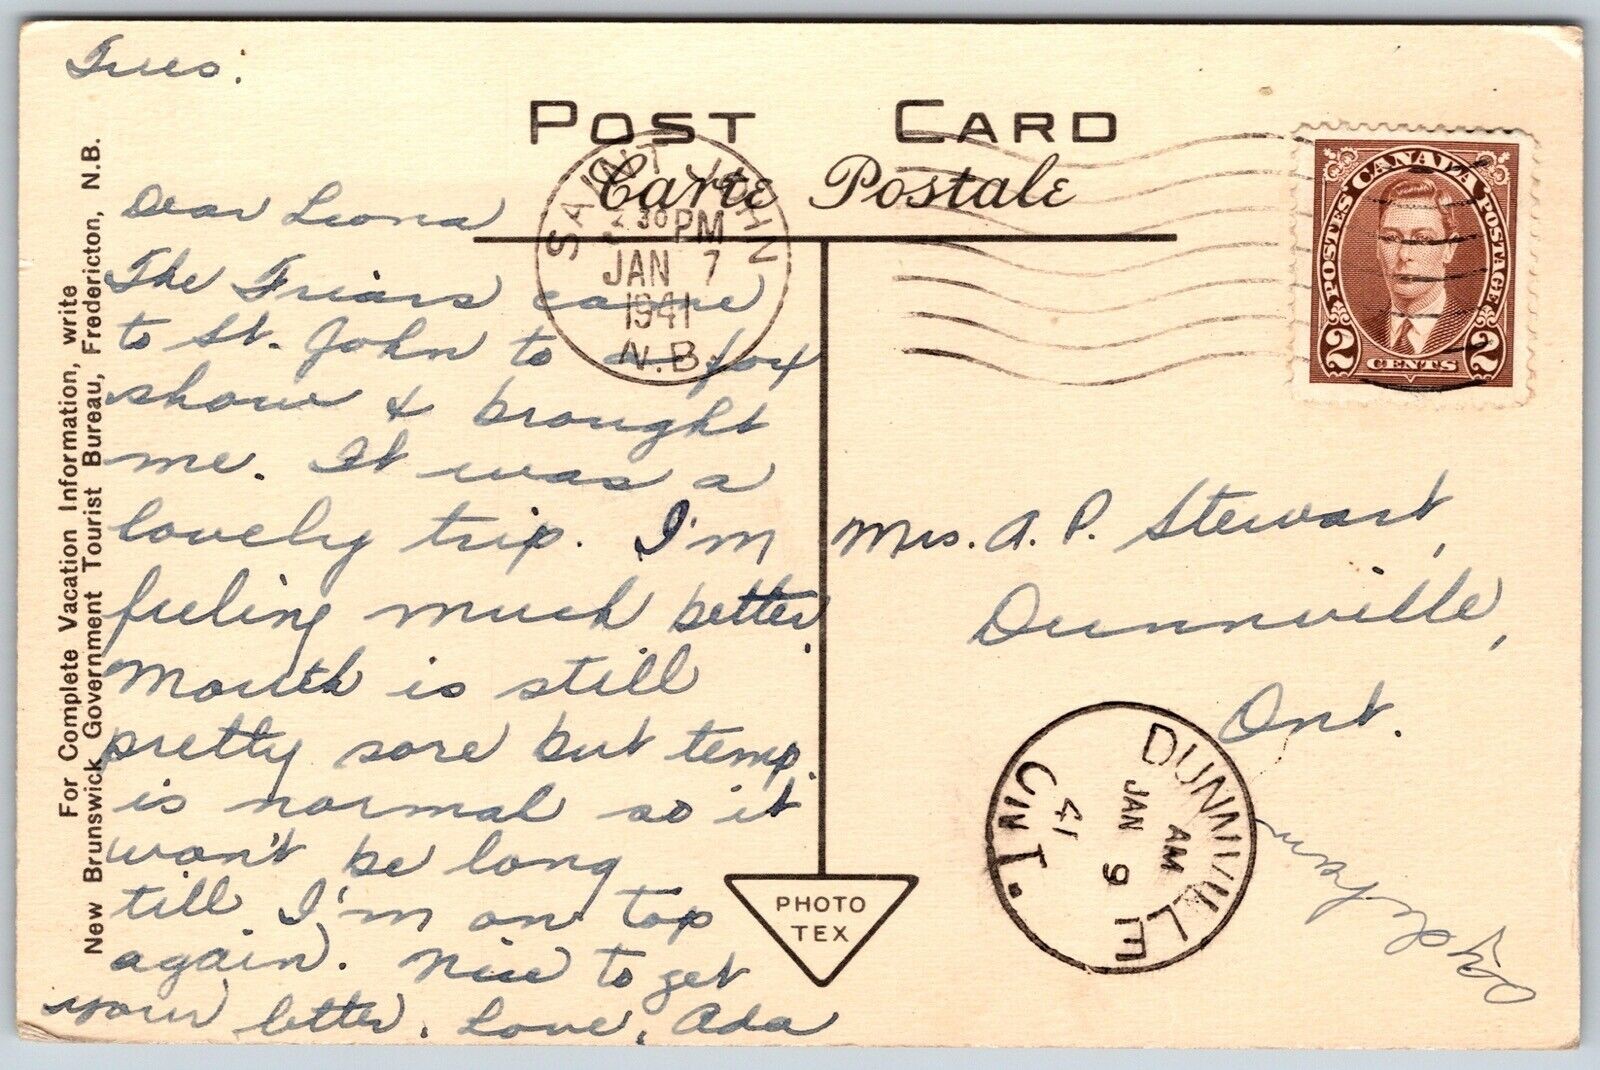 Tues.
POST CARD
Carte Postale
SAINT JOHN
30 PM
JAN 7
1941
N.B.
CANADA
POSTES POSTAGE
2 CENTS 2
Dear Leona
The Friars came
to St. John to a fox
show & brought
me. It was a
lovely trip. I'm
feeling much better.
Mouth is still
pretty sore but temp.
is normal so it
won't be long
till I'm on top
again. Nice to get
your letter. Love, Ada
Mrs. A. P. Stewart,
Dunnville,
Ont.
DUNNVILLE
AM
JAN 9
41
ONT.
PHOTO
TEX
For Complete Vacation Information, write
New Brunswick Government Tourist Bureau, Fredericton, N.B.